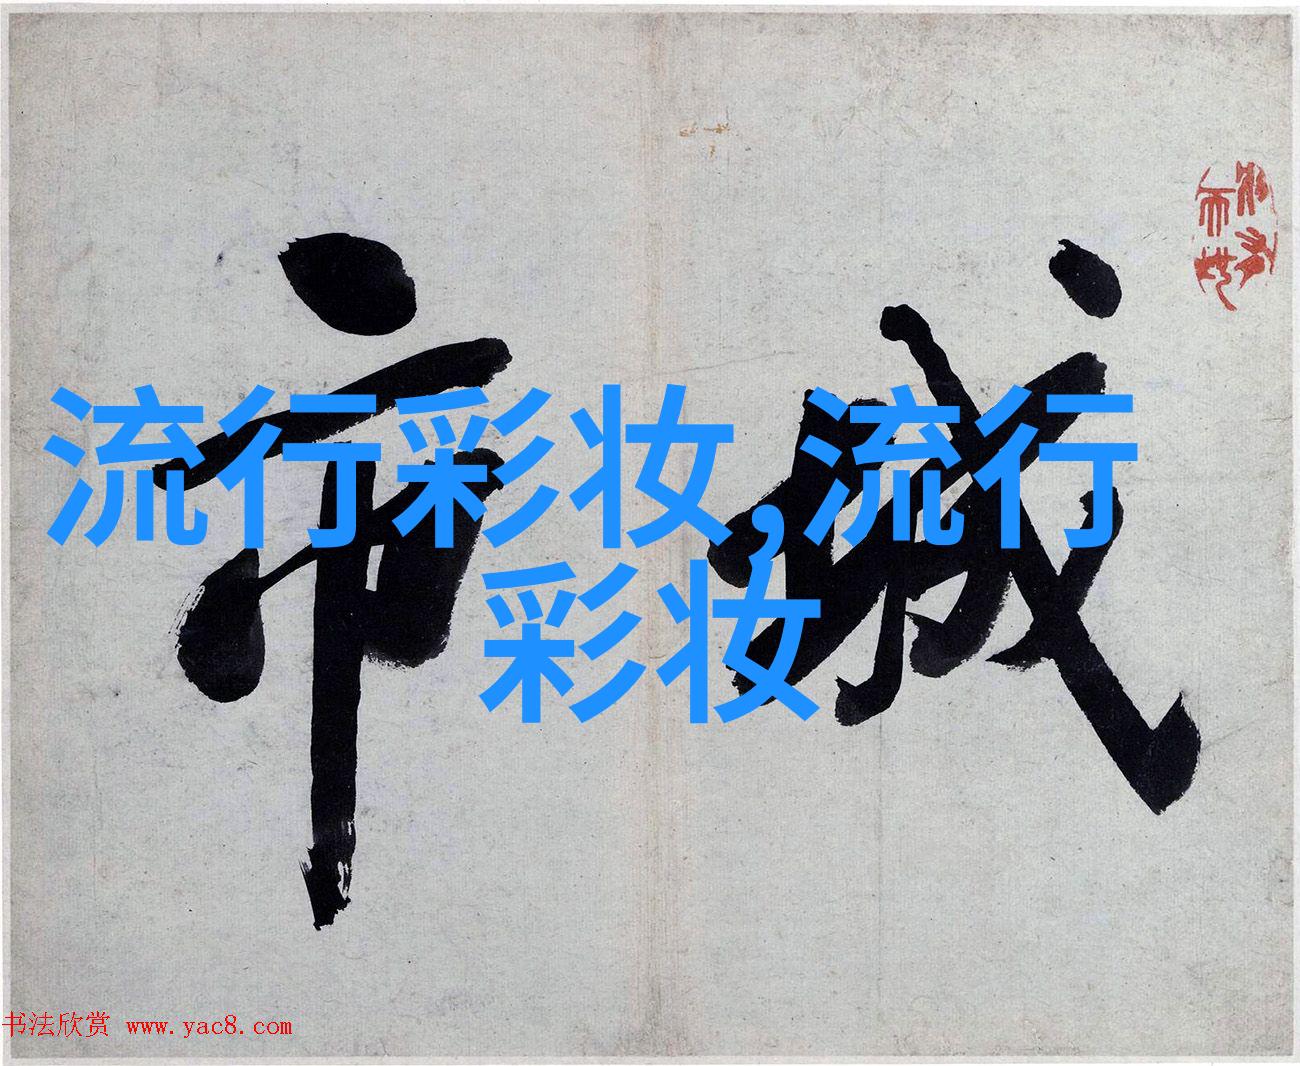 城市
流行彩妆,流行
彩妆
书法欣赏 www.yac8.com